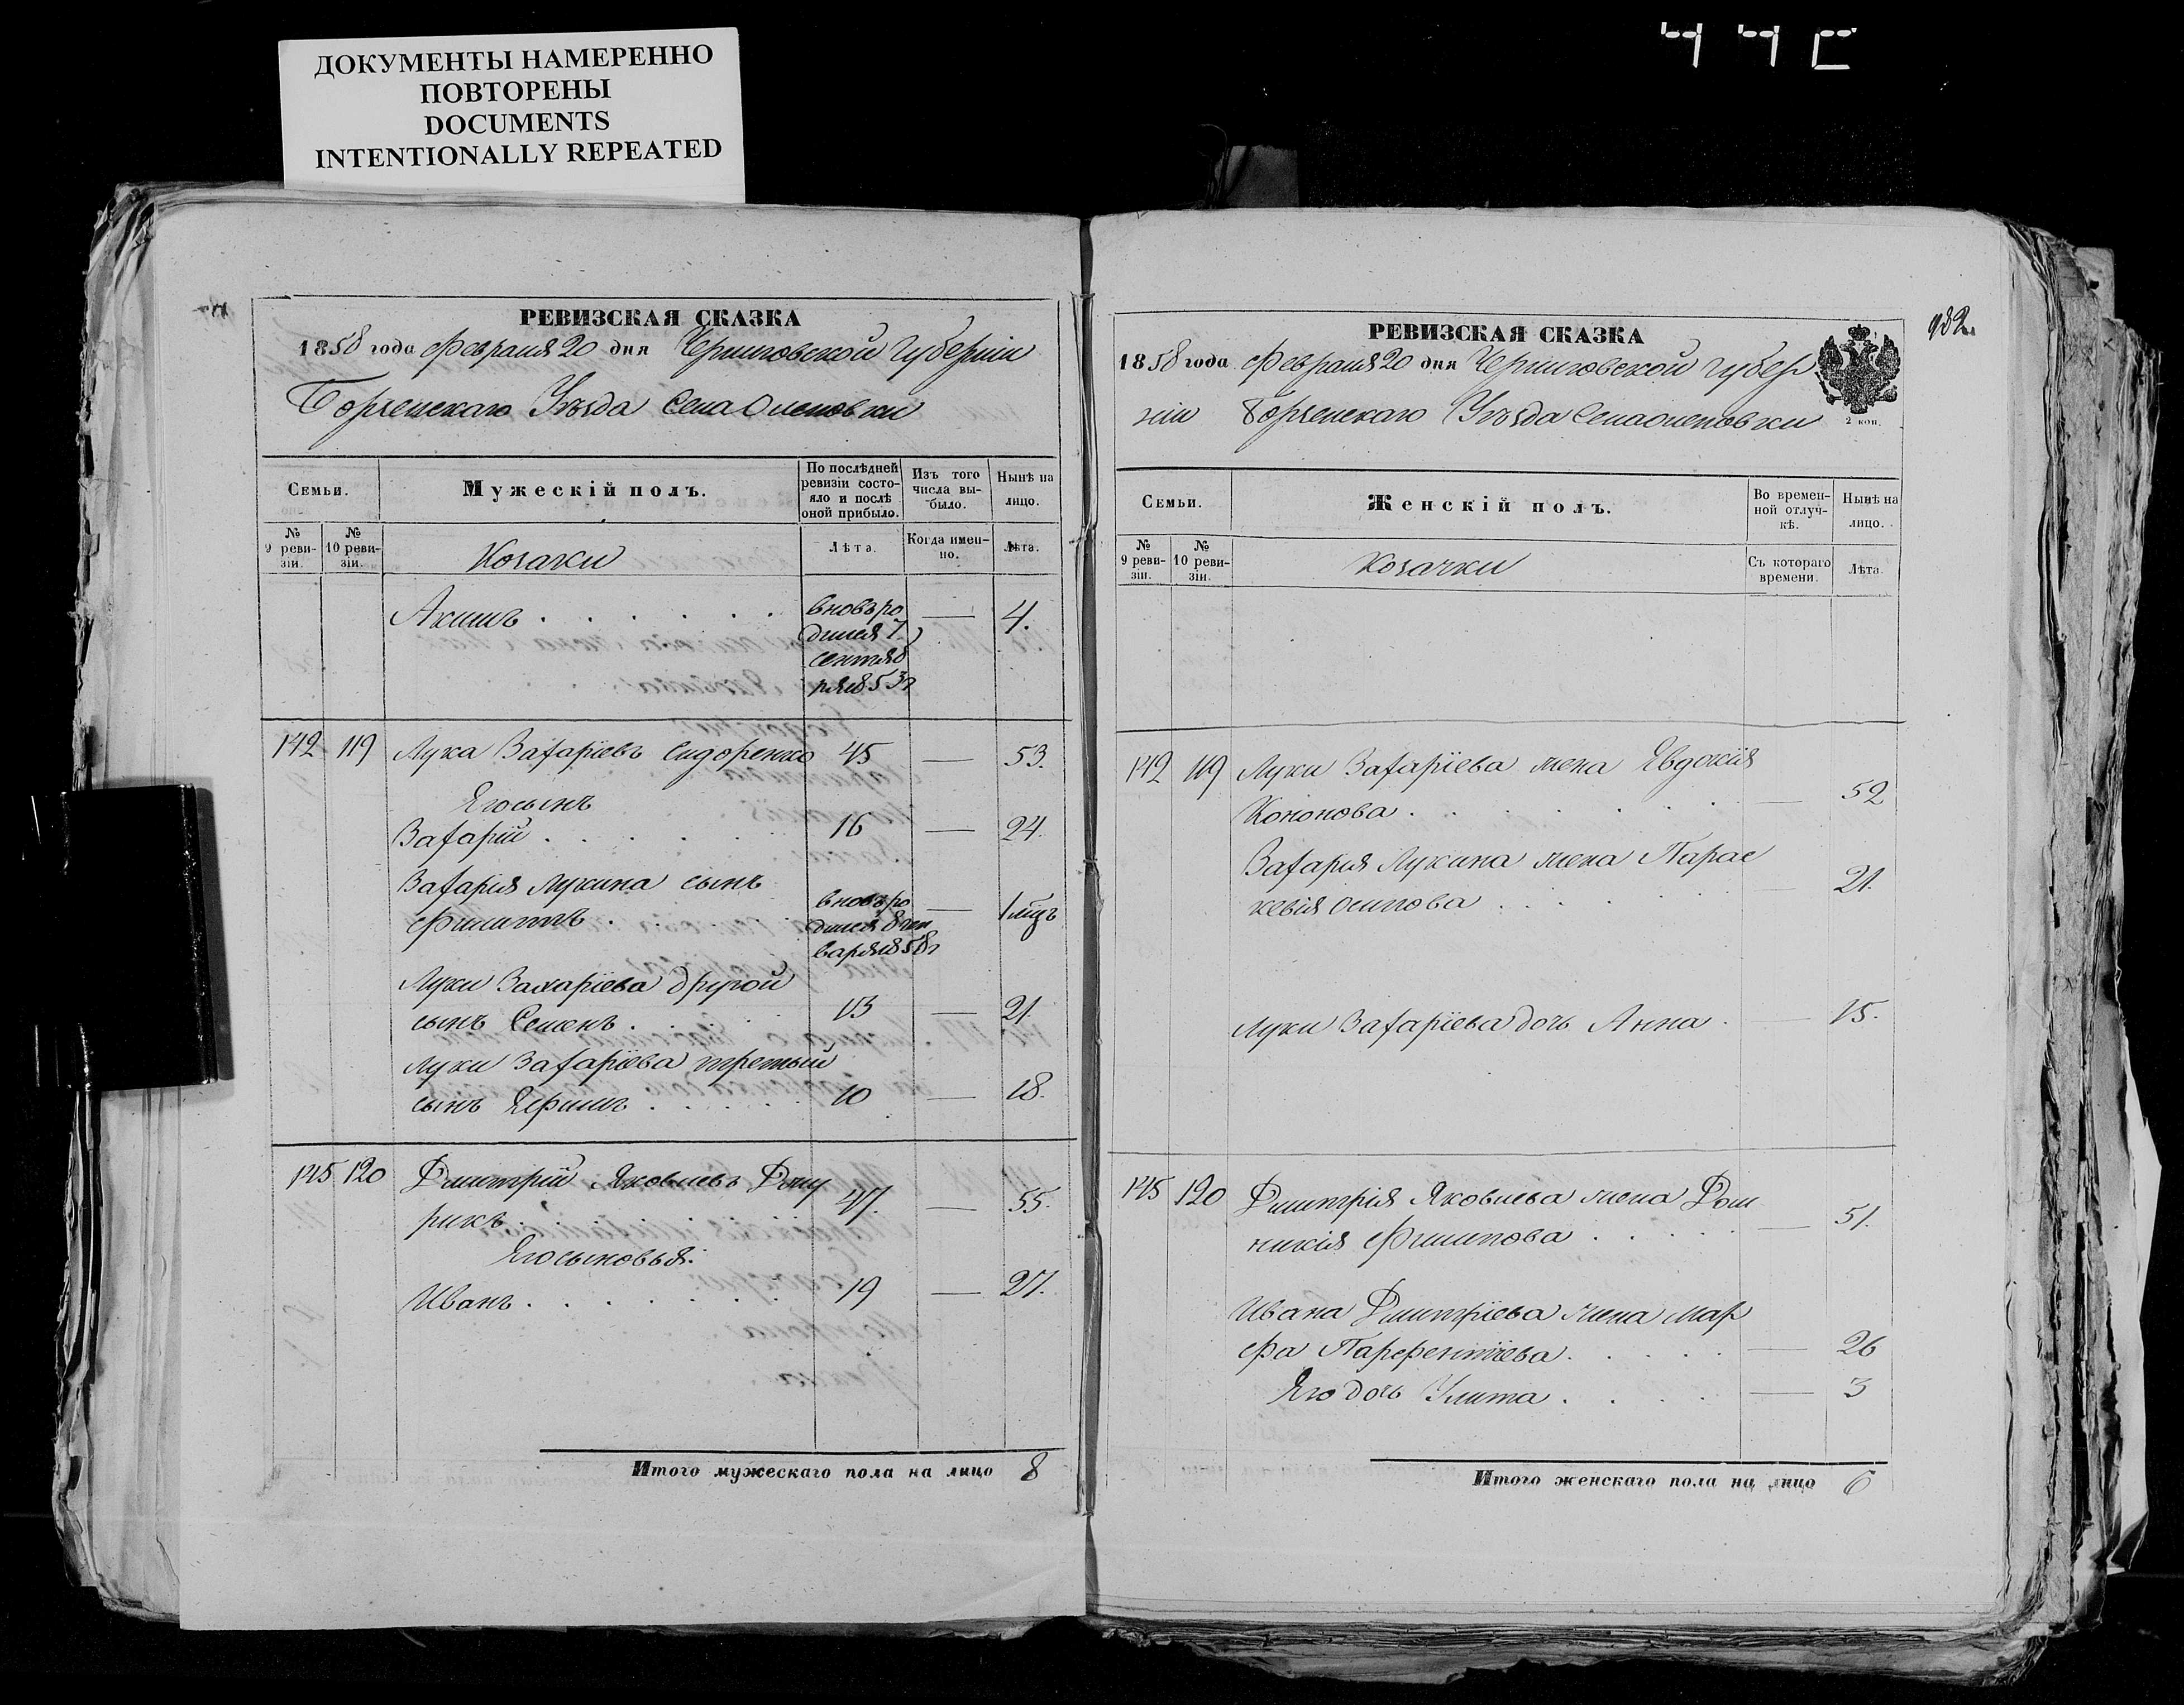 ДОКУМЕНТЫ НАМЕРЕННО
ПОВТОРЕНЫ
DOCUMENTS
INTENTIONALLY REPEATED
РЕВИЗСКАЯ СКАЗКА
1858 года Февраля 20 дня Черниговской Губерніи
Борзенскаго Уѣзда Села Оленовки
Семьи.
Мужескій полъ.
По послѣдней
ревизіи состо-
яло и послѣ
оной прибыло.
Изъ того
числа вы-
было.
Нынѣ на
лицо.
№
9 реви-
зіи.
№
10 реви-
зіи.
Козаки
Лѣта.
Когда имен-
но.
Лѣта.
Акимъ . . . . . . вновь ро — 4.
дился 7
сентяб
ря 853 г
142 119 Лука Захаріевъ Сидоренко 45 — 53.
Его сынъ
Захарій . . . . . 16 — 24.
Захарія Лукина сынъ
Филиппъ . . . . вновь ро — 1 мѣц
дился 8 ген
варя 858 г
Луки Захаріева другой
сынъ Семенъ . . . . 13 — 21.
Луки Захаріева третьий
сынъ Ефимъ . . . . . 10 — 18.
145 120 Дмитрій Яковлевъ
рикъ . . . . . . 47. — 55.
Его сыновья:
Иванъ . . . . . . . 19 — 27.
Итого мужескаго пола на лицо 8
РЕВИЗСКАЯ СКАЗКА
982
1858 года Февраля 20 дня Черниговской Губер
ніи Борзенскаго Уѣзда Села Оленовки
2 коп.
Семьи.
Женскій полъ.
Во времен-
ной отлуч-
кѣ.
Нынѣ на
лицо.
№
9 реви-
зіи.
№
10 реви-
зіи.
Козачки
Съ котораго
времени.
Лѣта.
142 119 Луки Захаріева жена Явдокія
Кононова . . . . . . — 52
Захарія Лукина жена Парас
кевія Осипова . . . . . — 21.
Луки Захаріева дочь Анна . — 15.
145 120 Дмитрія Яковлева жена Дом
никія Филипова . . . . — 51.
Ивана Дмитріева жена Мар
фа Парфентіева . . . . . — 26
Его дочь Улита . . . . — 3
Итого женскаго пола на лицо 6